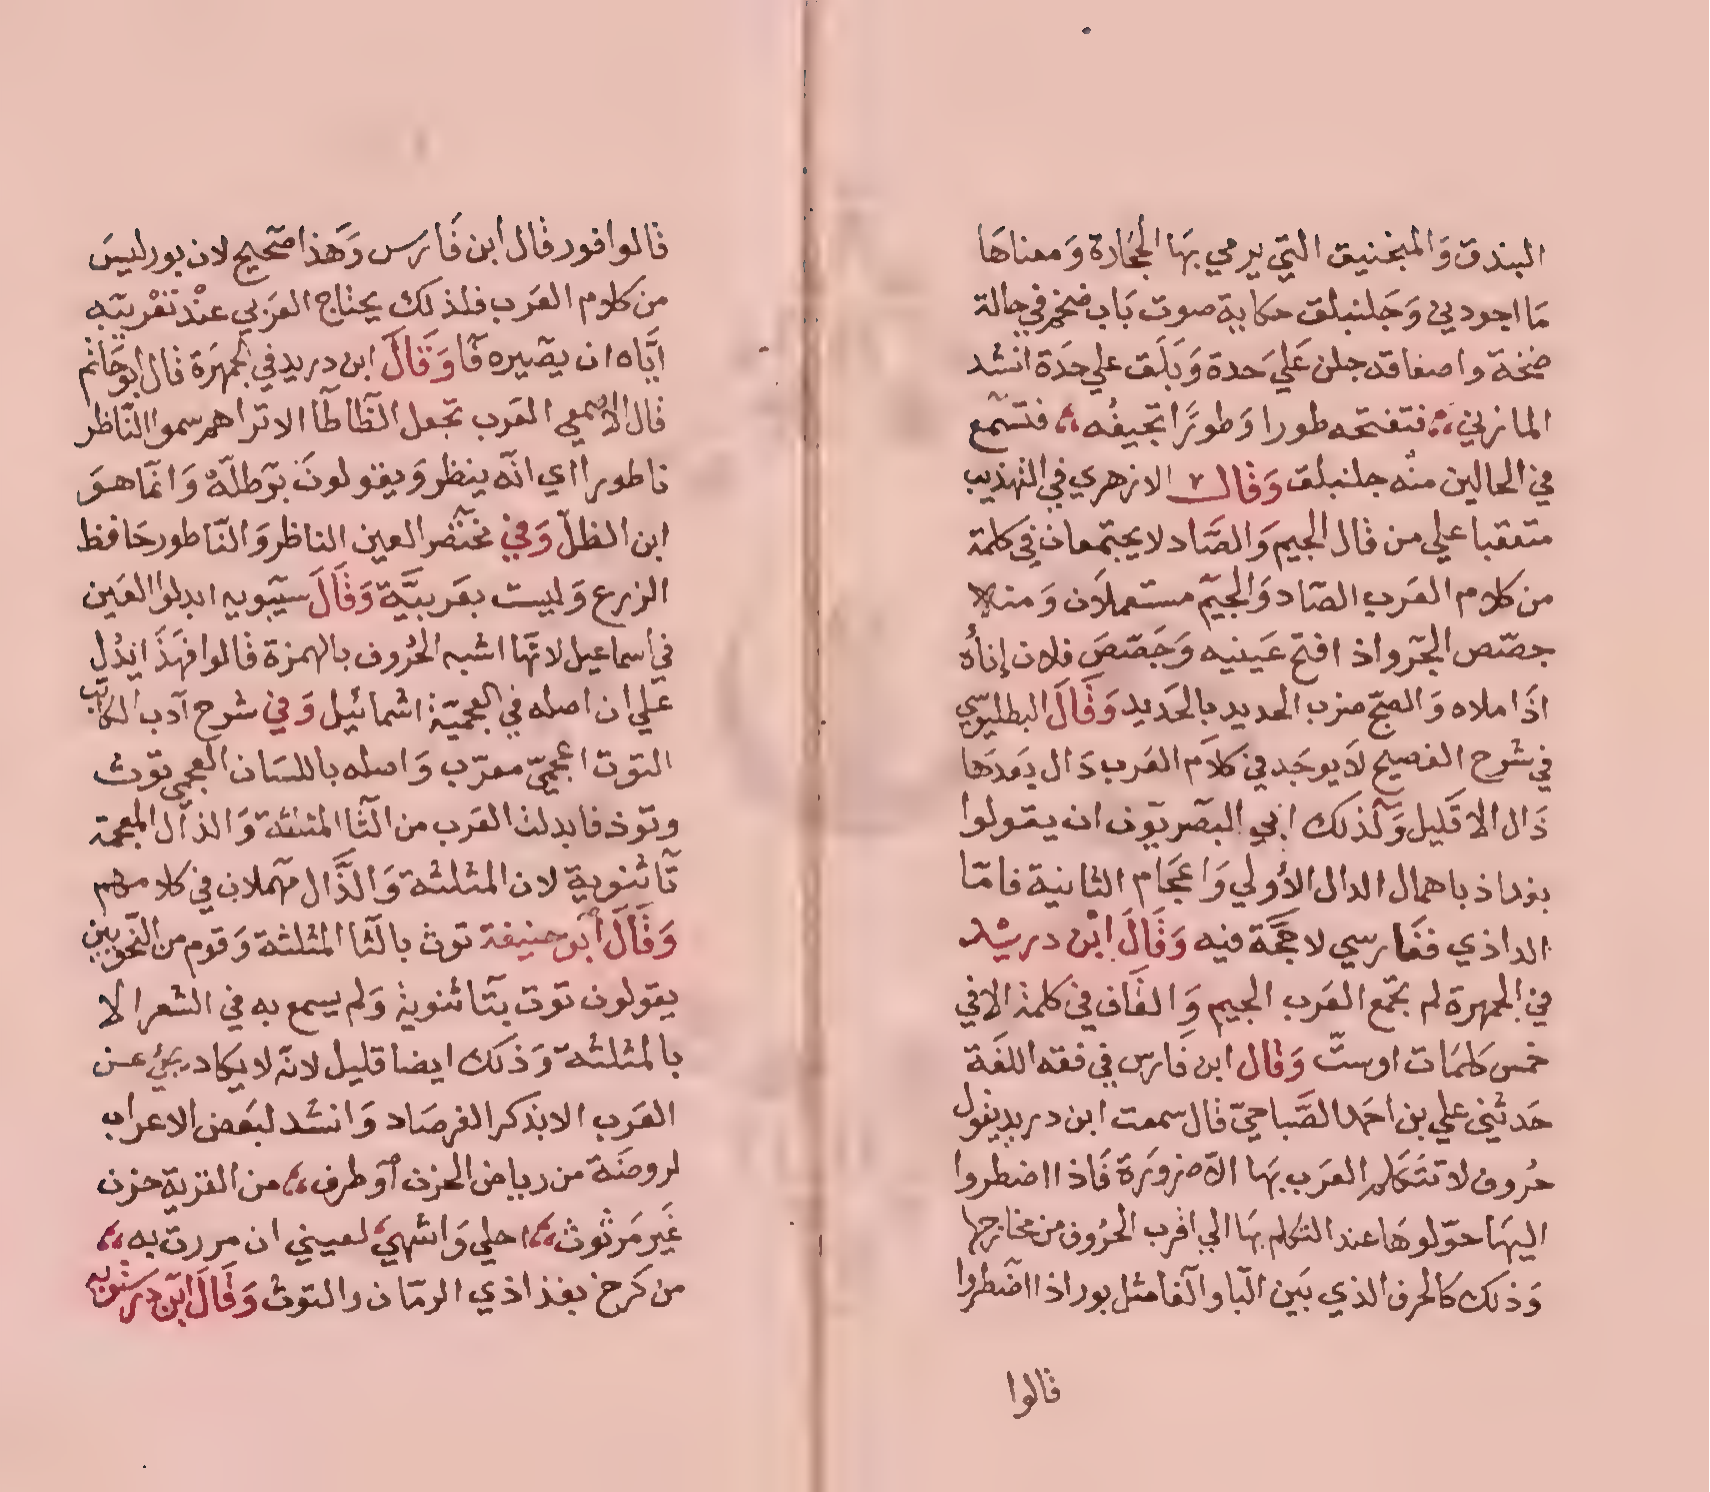 البندق وَالمنجنيق التي يرمي بهَا الحجَارة وَمعناهَا
مَا اجودني وَجَلنبلق حكاية صوت بَاب ضخم في حالة
ضخمة واصفاقه جلن عَلي حَدة وَبَلَق علي حدَة انشد
المازني فتفتحه طورا وَطورًا تجيفُه فتسمع
في الحالين منْه جلنبلق وَقال الازهري في التهذيب
متعقبا علي من قال الجيم وَالصَّاد لا يجتمعان في كلمة
من كلام العَرب الصّاد وَالجيم مستعملاَن وَمنه
جصّص الجرو اذ افتح عَينيه وَجَصّصَ فلان إناأه
اذَا ملاه وَالصبّح ضرب الحديد بالحَديد وَقَالَ البطليوسي
في شرح الفصيح لاَ يوجَد في كلاَم العَرب دَال بَعدَها
ذَال الا قَليل وَلذلك ابي البصريّون ان يقولوا
بغداذ باهمال الدال الأولي وَاعجَام الثانية فامّا
الداذي ففَارسي لا حجّة فيه وَقَالَ ابْن دريد
في الجمهرة لم تجمع العَرب الجيم وَالقَاف في كلمة الا في
خمس كلمَات اوستّ وَقال ابن فَارس في فقه اللغَة
حَدثني علي بن احمَد الصَّباحيّ قال سمعت ابن دريد يقول
حُروف لا تتَكَلم العَرب بهَا الاّ ضرورَة فَاذ ااضطروا
اليهَا حوّلوهَا عند التكلم بهَا الي اقرب الحرُوف من مخارجها
وَذلك كَالحرف الذي بَين البا وَالفا مثل بور اذ ااضطروا
قالوا
قالوا فور قال ابن فَارَس وَهذا صَحيح لان بور ليسَ
من كلام العَرب فلذلك يحتاج العَربي عنْد تعْريبَه
ايَّاه ان يصَيره فَا وَقَالَ ابن دريد في الجمهَرَة قال ابوحَاتم
قال الاصمعي العَرب تجعل الظّا طاَ الا تراهم سموا النّاظر
ناطورا اي انّه ينظر وَيقولونَ بَرطلَّهْ وَانمّا هوَ
ابن الظلّ وَفي مختصر العين الناظر وَالنّاطور حَافظ
الزرع وَليست بعَربيَّة وَقَالَ سيبَويه ابدلوا العَين
في اسماعيل لانّهَا اشبه الحُروف بالهمزة قالوا فهَذَا يَدُل
علي ان اصله في العجميّة اشمائيل وَفي شرح ادب الكاتب
التوت اعجميّ معرّب وَاصله باللسَان العجمي توث
وتوذ فابدلت العَرب من الثا المثلثة وَالذاَل المعجمة
تَا ثنوية لان المثلثة وَالذَّال مهملان في كلامهم
وَقَالَ أبو حنيفة توث بالثا المثلثة وَقوم من النّحويين
يقولون توت بتَا ثنوية وَلم يسمع به في الشعر الا
بالمثلثة وَذلك ايضا قليل لانه لا يكاد يجيُ عن
العَرب الا بذكر الفرصَاد وَانشد لبَعض الاعراب
لروضَة من رياض الحزن اَو طرف من القرية حزن
غَير مَرثوث احلي وَاشهيَ لعيني ان مررت به
من كَرخ بغذاذي الرمّان والتوث وَقَالَ ابن دَرستويه